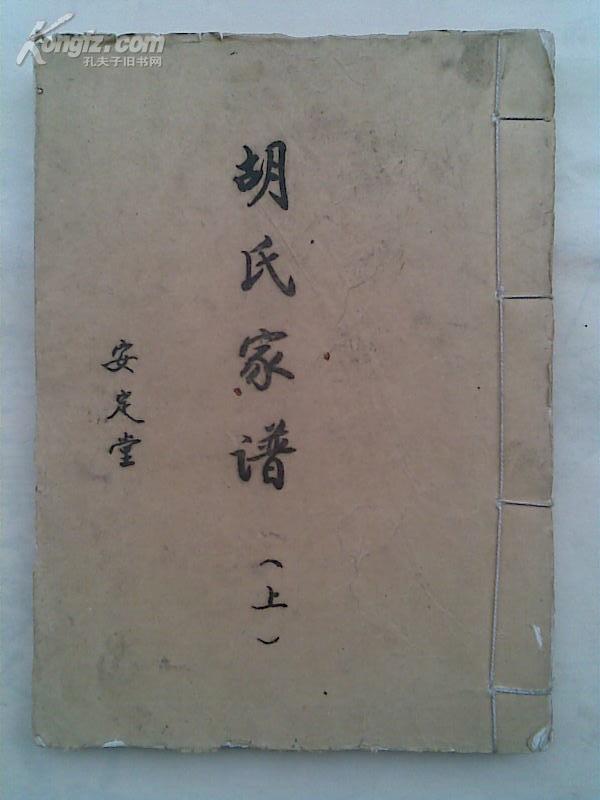 Kongfz.com
孔夫子旧书网
胡氏家谱(上)
安定堂